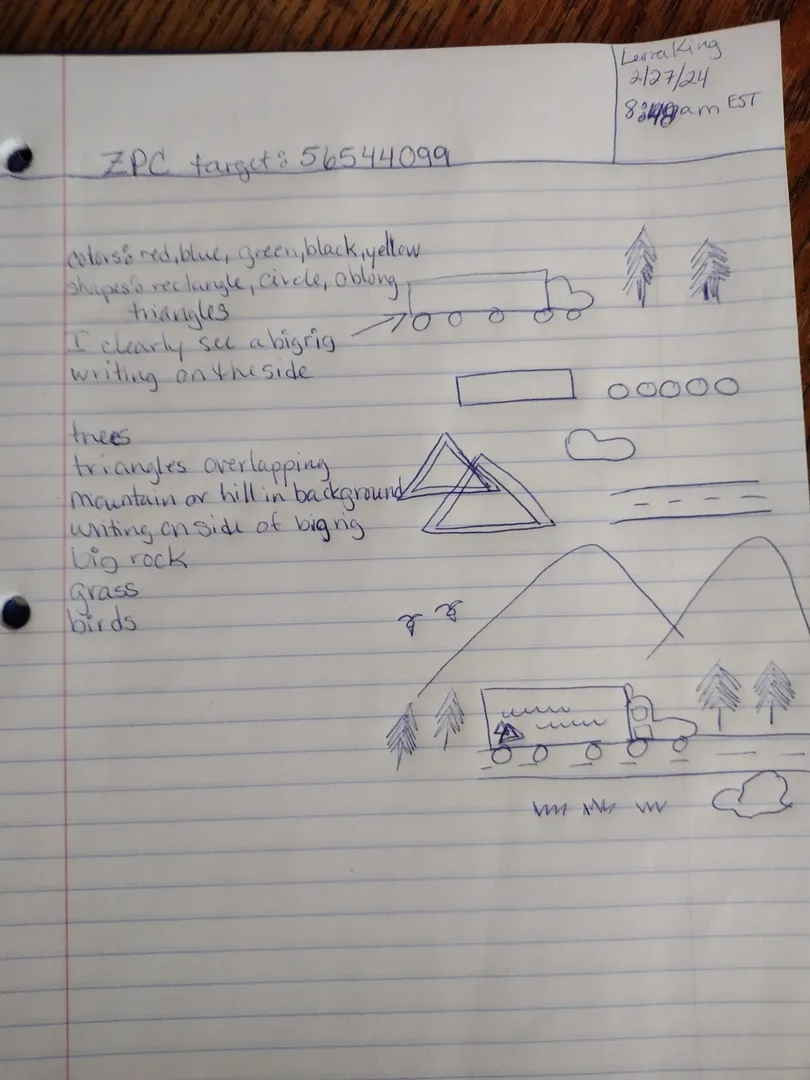 King
2/27/24
am EST
ZPC target: 56544099
colors: red, blue, green, black, yellow
shapes: rectangle, circle, oblong,
triangles
I clearly see a bigrig
writing on the side
trees
triangles overlapping
mountain or hill in background
writing on side of bigrig
big rock
grass
birds